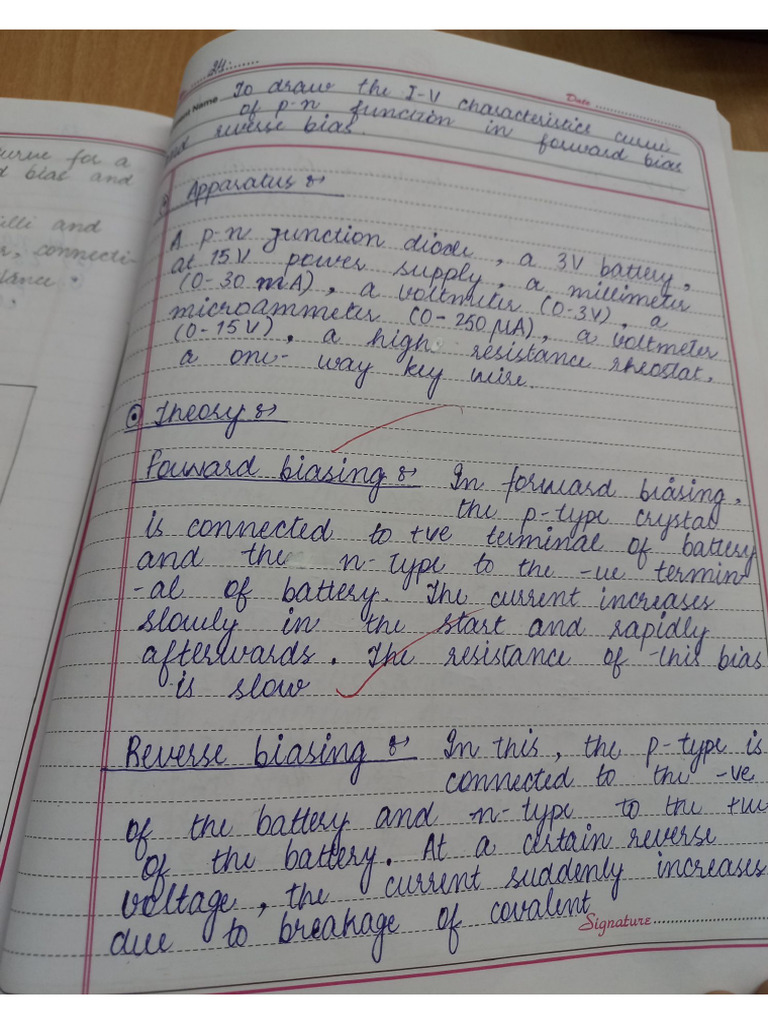 24
Date
Name To draw the I-V characteristics curve
of p-n function in forward bias
reverse bias.
Apparatus :-
A p-n junction diode, a 3V battery,
at 15V power supply, a millimeter
(0-30 mA), a voltmeter (0-3V), a
microammeter (0-250 μA), a voltmeter
(0-15V), a high resistance rheostat,
a one-way key wire.
Theory :-
Forward biasing :- In forward biasing,
the p-type crystal
is connected to +ve terminal of battery
and the n-type to the -ve termin
-al of battery. The current increases
slowly in the start and rapidly
afterwards. The resistance of this bias
is slow
Reverse biasing :- In this, the p-type is
connected to the -ve
of the battery and n-type to the +ve
of the battery. At a certain reverse
voltage, the current suddenly increases
due to breakage of covalent
Signature
urve for a
bias and
illi and
r, connecti-
stance